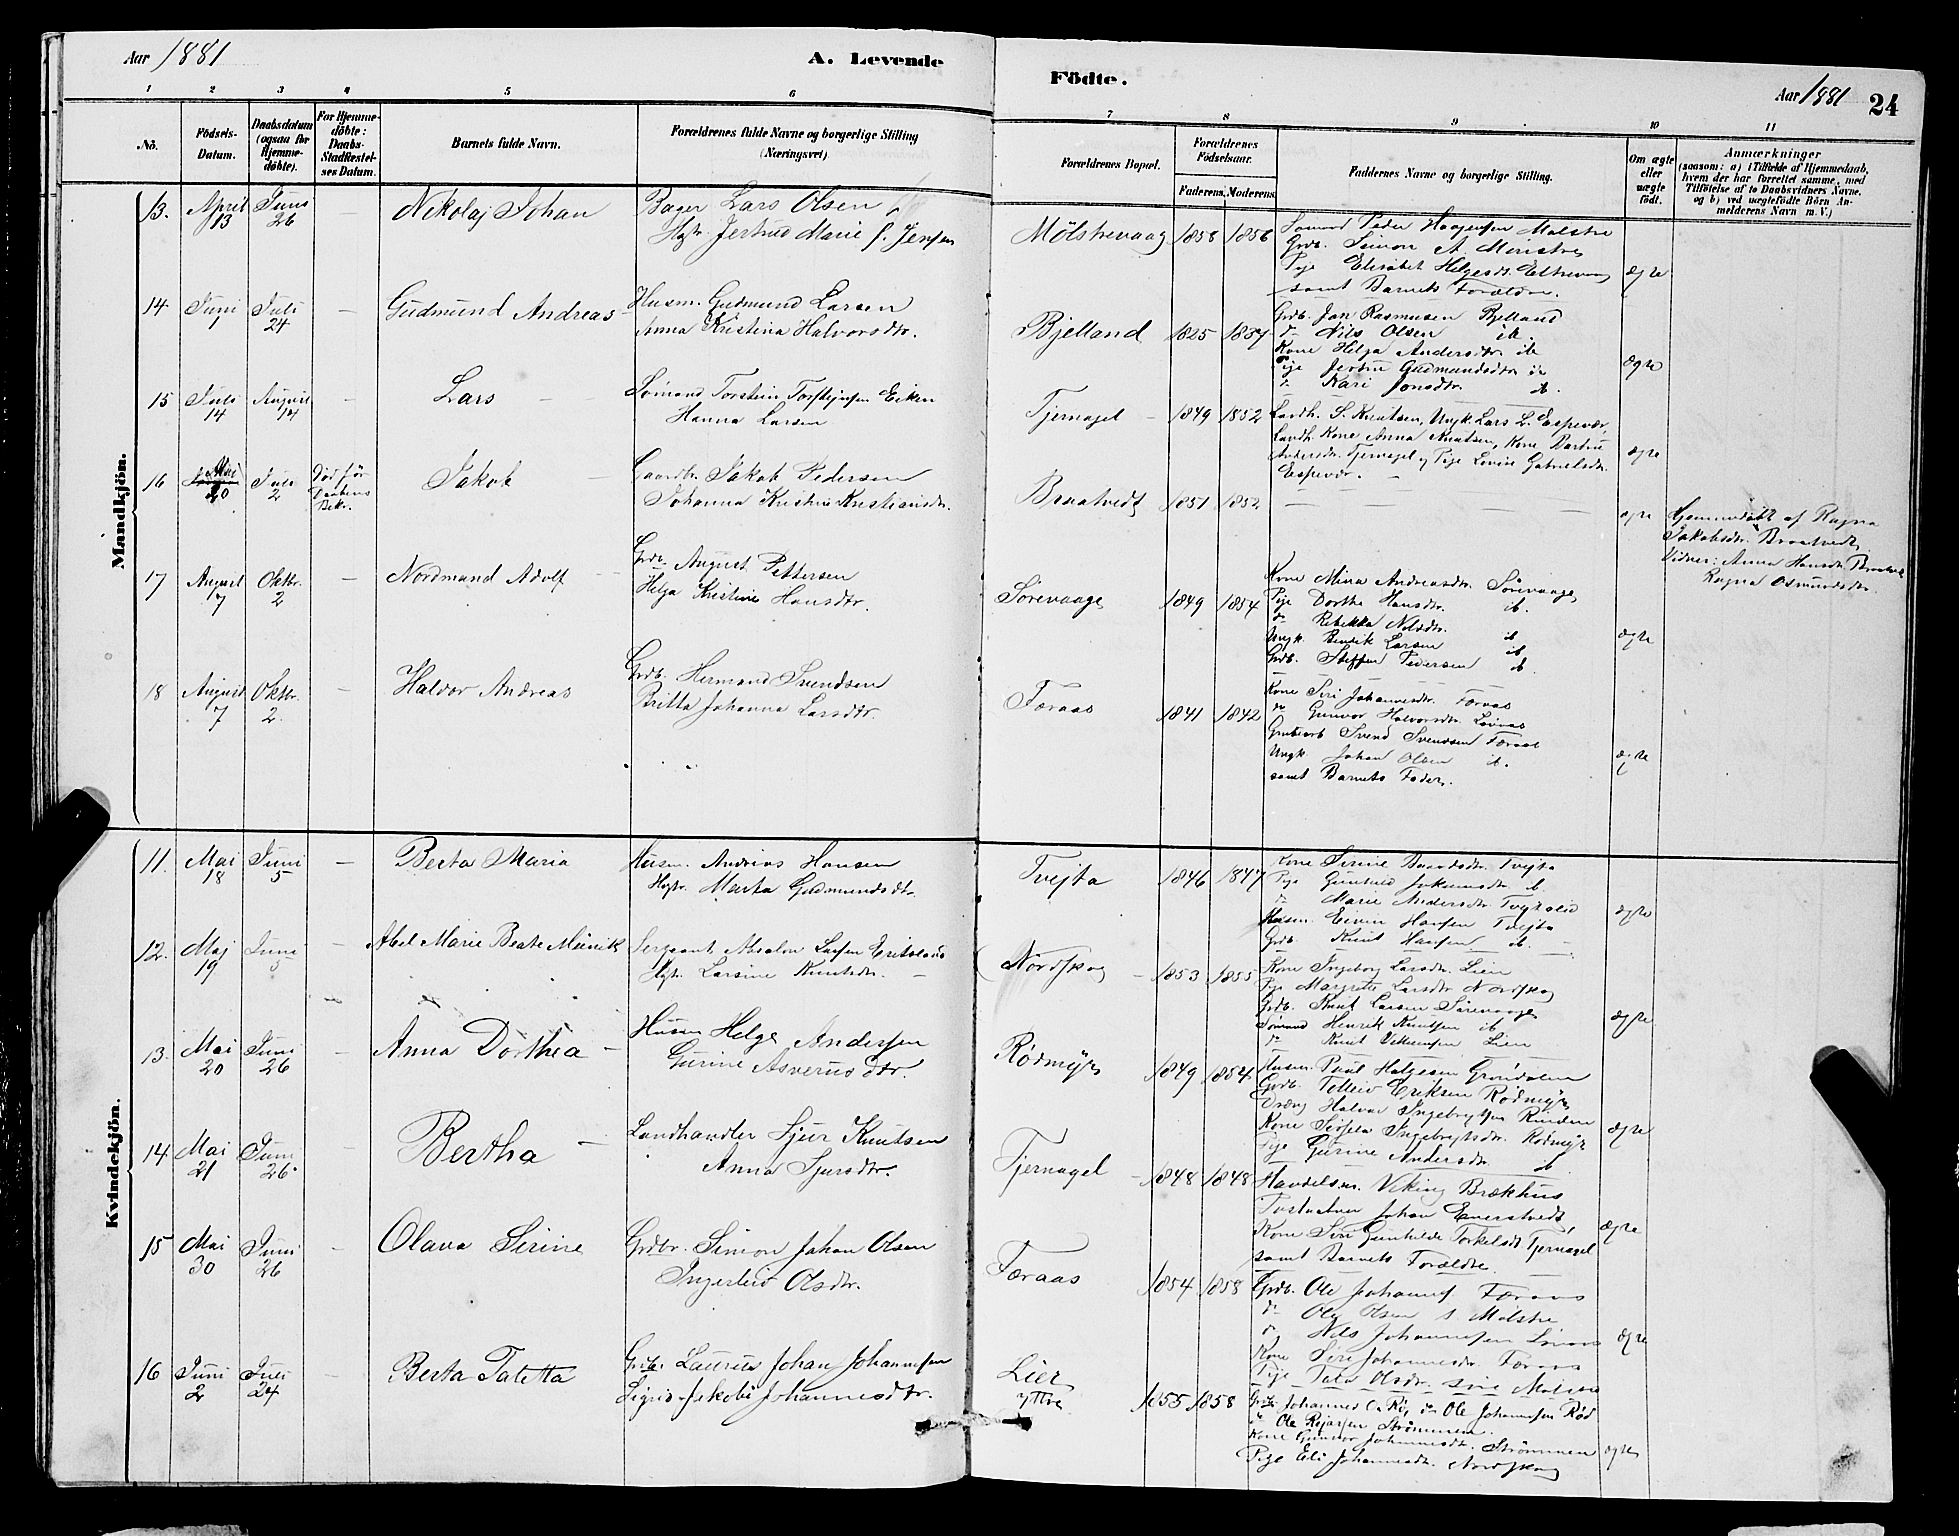 Aar 1881
A. Levende
Födte.
Aar 1881
24
1 2 3 4 5 6 7 8 9 10 11
No.
Födsels-Datum.
Daabsdatum (ogsaa for Hjemme-döbte).
For Hjemme-döbte: Daabs-Stadfæstel-ses Datum.
Barnets fulde Navn.
Forældrenes fulde Navne og borgerlige Stilling (Næringsvei)
Forældrenes Bopæl.
Forældrenes Födselsaar.
Faderens. Moderens.
Faddernes Navne og borgerlige Stilling.
Om ægte eller uægte födt.
Anmærkninger
(saasom: a) i Tilfælde af Hjemmedaab, hvem der har forrettet samme, med Tilföielse af to Daabsvidners Navne, og b) ved uægtefödte Börn An-melderens Navn m. V.)
Mandkjön.
13. April 13 Juni 26 — Nikolaj Johan
Bager Lars Olsen
Hgtr. Jertrud Marie f. Jensen
Mölstrevaag 1858 1856
Sömand Peder Haagensen Molstre
Grdb. Simon A.
Pige Elisabet Helgesdt.
samt Barnets Forældre.
ægte
14 Juni 1 Juli 24 — Gudmund Andreas
Husm. Gudmund Larsen
Anna Kristina Halvorsdtr.
Bjelland 1825 1837
Grdb. Jan Rasmusen Bjelland
do Nils Olsen ib.
Kone Helga Andersdtr ib
Pige Gudmundsdtr ib
do Kari Jonsdtr. ib.
ægte
15 Juli 14 August 14 — Lars
Sömand Torstein Torsteinsen Eiken
Hanna Larsen
Tjernagel 1849 1852
Landh. S. Knutsen, Ungk. Lars L. Espevær,
Landh. Kone Anna Knutsen, Kone
Andersdtr. Tjernagel, Pige Lovise Gabrielsdtr.
Espevær.
ægte
16 Mai 20 Juli 2 Död för Daabens Bekr. Jakob
Gaardbr. Jakob Pedersen
Johanna Kristine Kristiansdtr.
Braatvedt 1851 1852
ægte
Hjemmedöbt af Ragna
Jakobsdtr. Braatvedt
Vidner: Anna Hansdtr. Braatvedt
Ragna Osmundsdtr.
17 August 7 Oktbr. 2 — Nordmand Adolf
Grdb. August Pettersen
Helga Kristine Hansdtr.
Sörevaage 1849 1854
Kone Mina Andreasdtr. Sörevaage
Pige Dorthe Hansdtr. ib.
do Rebekka Nilsdtr.
Ungk. Bendik Larsen ib
Grdb. Steffen Pedersen ib
ægte
18 August 7 Oktbr. 2. — Haldor Andreas
Grdb. Hermand Svendsen
Britta Johanna Larsdtr.
Færaas 1841 1842
Kone Siri Johannesdtr. Færaas
do Gunvor Halvorsdtr.
Svend Svendsen Færaas
Ungk. Johan Olsen ib.
samt Barnets Fader.
ægte
Kvindekjön.
11. Mai 18 Juni 5 — Berta Maria
Husm. Andreas Hansen
Hgtr. Marta Gudmundsdtr.
Tvejta 1846 1847
Kone Serine Tvejta
Pige Gunhild ib.
do Marie Andersdtr.
Husm. Hansen Tvejta
Grdb. Knut Hansen ib.
ægte
12. Maj 19 Juni 5 — Abel Marie Beate Meinik
Sergeant Absalon Larsen
Hgtr. Larsine Knutsdtr.
Nordskog 1853 1855
Kone Ingeborg Larsdtr. Lien
Pige Margrete Larsdtr Nordskog
Grdb. Knut Larsen Sörevaage
Sömand Henrik Knutsen ib
do Knut Lien
ægte
13. Mai 20 Juni 26 — Anna Dorthea
Husm Helge Andersen
Gurine Asverusdtr.
Rödmyr 1849 1854
Husm. Paul Helgesen Gröndalen
Grdb. Tolleiv Eriksen Rödmyr
Dreng Halvor
Kone Ingebrigtsdtr. Rödmyr
Pige Gurine Andersdtr ib
ægte
14 Mai 21 Juni 26 — Bertha
Landhandler Sjur Knutsen
Anna Sjursdtr.
Tjernagel 1848 1848
Handelsm. Viking Brækhus
Johan
Kone Siri Gunhilde Torkelsdt Tjernagel
samt Barnets Forældre.
ægte
15 Mai 30 Juni 26 — Olava Serine
Grdbr. Simon Johan Olsen
Ingerleiv Olsdtr.
Færaas 1854 1858
Grdb. Ole Johannes Færaas
do Ole Olsen s. Molstre
do Nils Johannesen
Kone Siri Johannesdtr. Færaas
Pige Olsdtr. Molstre
ægte
16 Juni 2 Juli 24 — Berta Taletta
Grdb. Laurius Johan Johannesen
Sigrid Jakobe Johannesdtr.
Lier yttre 1855 1858
Grdb. Johannes do Ole Johannesen Röd
do Ole Strömmen.
Kone Gunvor Johannesdtr. Strömmen
Pige Eli Johannesdtr. Nordskog
ægte